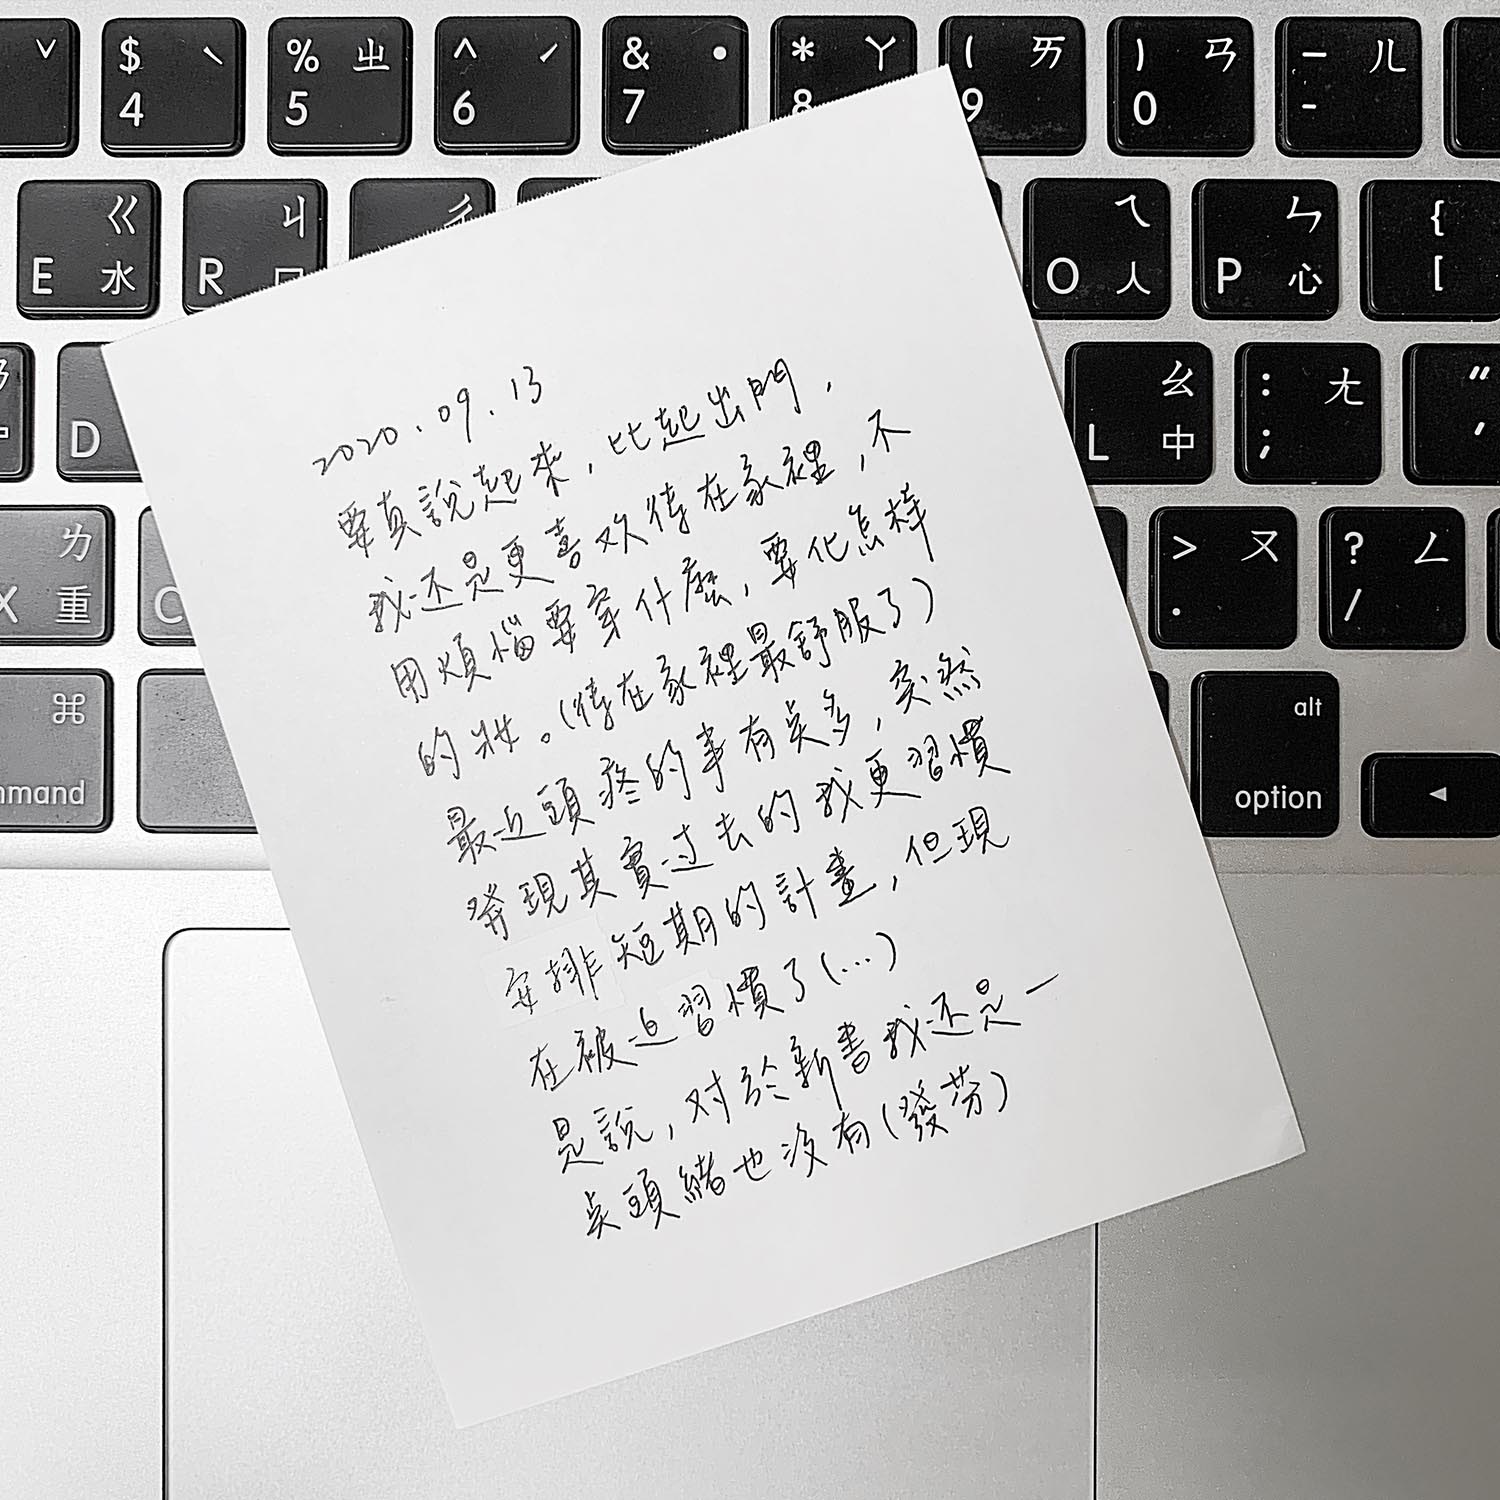 ˇ
$ ˋ
4
% ㄓ
5
^ ˊ
6
& ˙
7
* ㄚ
8
( ㄞ
9
) ㄢ
0
— ㄦ
-
ㄍ
E 水
ㄐ
R 口
ㄔ
ㄟ
O 人
ㄣ
P 心
{
[
D
ㄠ
L 中
: ㄤ
;
"
'
ㄌ
X 重
C
> ㄡ
.
? ㄥ
/
⌘
mmand
alt
option
◀
2020.09.13
要真說起來,比起出門,
我还是更喜欢待在家裡,不
用煩惱要穿什麼,要化怎样
的妝。(待在家裡最舒服了)
最近頭疼的事有点多,突然
發現其實过去的我更習慣
安排短期的計畫,但現
在被迫習慣了(...)
是說,对於新書我还是一
点頭緒也没有(發芬)